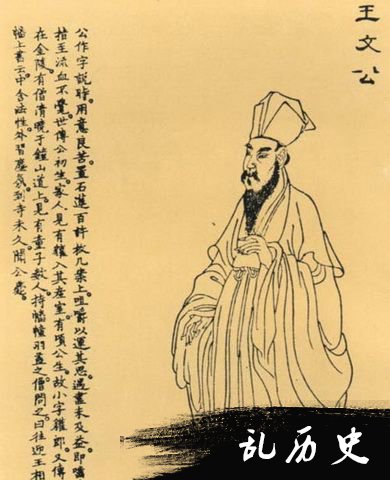 王文公
公作字說時。用意良苦。置石蓮百許枚几案上。咀嚼以運其思。遇盡未及益。即嚙
指至流血不覺。世傳公初生。家人見有獾入其產室。有頃公生。故小字獾郎。又傳
在金陵。有僧清曉于鐘山道上。見有童子數人。持幡幢羽蓋之。僧問之。曰往迎王相
幡上書云。中含法性。外習塵氛。到寺未久。聞公薨。
乱历史